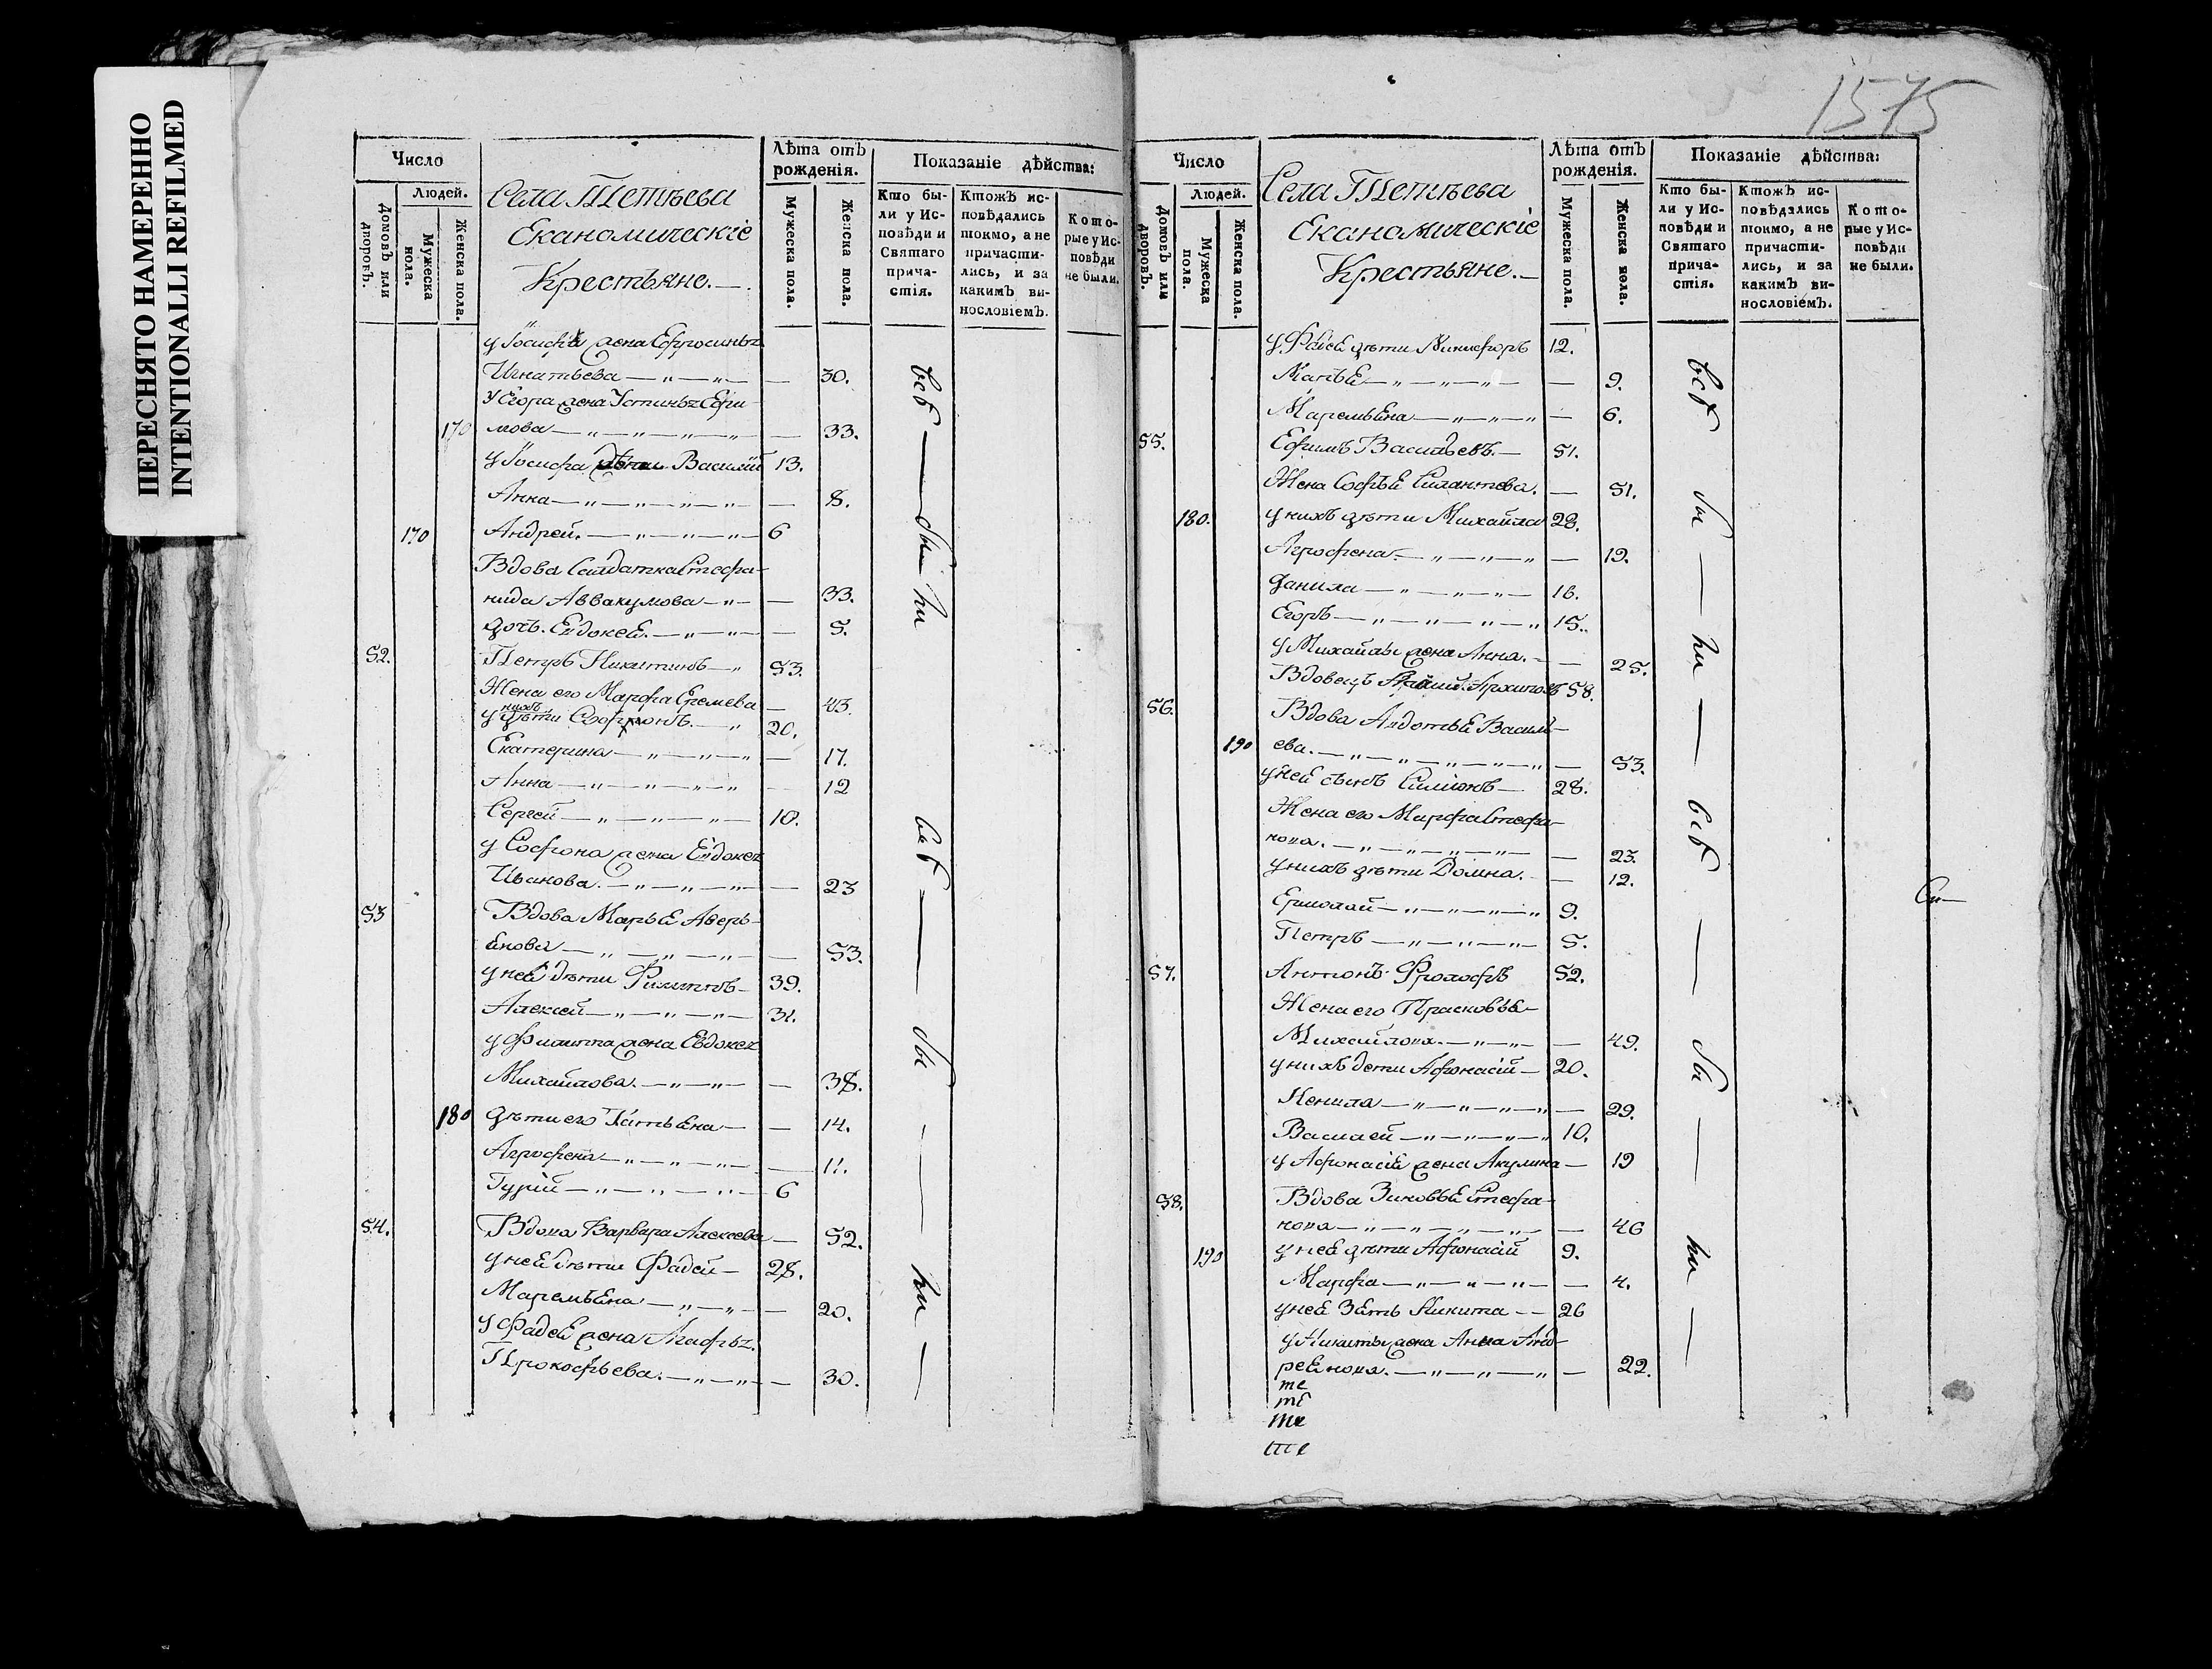 ПЕРЕСНЯТО НАМЕРЕННО
INTENTIONALLI REFILMED
1575
Число
Людей.
Домовъ или дворовъ.
Мужеска пола.
Женска пола.
Села Тетѣева
Економическіе
Крестьяне.
Лѣта отъ рожденія.
Мужеска пола.
Женска пола.
Показаніе дѣйства:
Кто бы-
ли у Ис-
повѣди и
Святаго
прича-
стія.
Ктожъ ис-
повѣдались
токмо, а не
причасти-
лись, и за
какимъ ви-
нословіемъ.
Кото-
рые у Ис-
повѣди
не были.
у Іосифа жена Ефросинья
Игнатьева — 30.
У Егора жена Устинья Ефи-
170 мова — 33.
у Іосифа дѣти Василій 13.
Анна — 8.
170 Андрей. — 6
Вдова Салдатка Стефа-
нида Аввакумова — 33.
дочь Евдокея. — 5.
52. Петръ Никитинъ — 53.
Жена его Марфа Еремева — 43.
у нихъ дѣти Софронъ. — 20.
Екатерина — 17.
Анна — 12
Сергей — 10.
у Софрона жена Евдокея
Иванова. — 23
53 Вдова Марья Аверь-
янова — 53.
у ней дѣти Филиппъ — 39.
Алексей — 31.
у Филиппа жена Евдокея
Михайлова. — 38.
180 дѣти его Татьяна — 14.
Агрофена — 11.
Гурій — 6
54. Вдова Варвара Алексева — 52.
у ней дѣти Фадей — 28.
Маремьяна — 20.
у Фадея жена Агафья
Прокофьева. — 30.
всѣ — бы — ли
всѣ — бы — ли —
Число
Людей.
Домовъ или дворовъ.
Мужеска пола.
Женска пола.
Села Тетѣева
Економическіе
Крестьяне. —
Лѣта отъ рожденія.
Мужеска пола.
Женска пола.
Показаніе дѣйства:
Кто бы-
ли у Ис-
повѣди и
Святаго
прича-
стія.
Ктожъ ис-
повѣдались
токмо, а не
причасти-
лись, и за
какимъ ви-
нословіемъ.
Кото-
рые у Ис-
повѣди
не были.
у Фадея дѣти Никифоръ 12.
Марья — 9.
Маремьяна — 6.
55. Ефимъ Васильевъ. — 51.
Жена Софья Силантева. — 51.
180. у нихъ дѣти Михайла 28.
Агрофена — 19.
Данила — 16.
Егоръ — 15.
у Михайлы жена Анна. — 25.
Вдовецъ Архиповъ 58.
56. Вдова Авдотья Василь-
190 ева. — 53.
у ней сынъ Симіонъ — 28.
Жена его Марфа Стефа-
нова. — 23.
у нихъ дѣти Домна. — 12.
Ермолай — 9.
Петръ — 5.
57. Антонъ Фролофъ 52.
Жена его Прасковья
Михайлова. — 49.
у нихъ дети Афонасій — 20.
Ненила — 29.
Василей — 10.
у Афонасія жена Акулина — 19
58. Вдова Зиновья Стефа-
нова — 46
190 у ней дѣти Афонасій 9.
Марфа — 4.
у ней Зять Никита — 26
у Никиты жена Анна Анд-
реянова. — 22.
те
те
те
те
всѣ бы — ли —
всѣ — бы — ли —